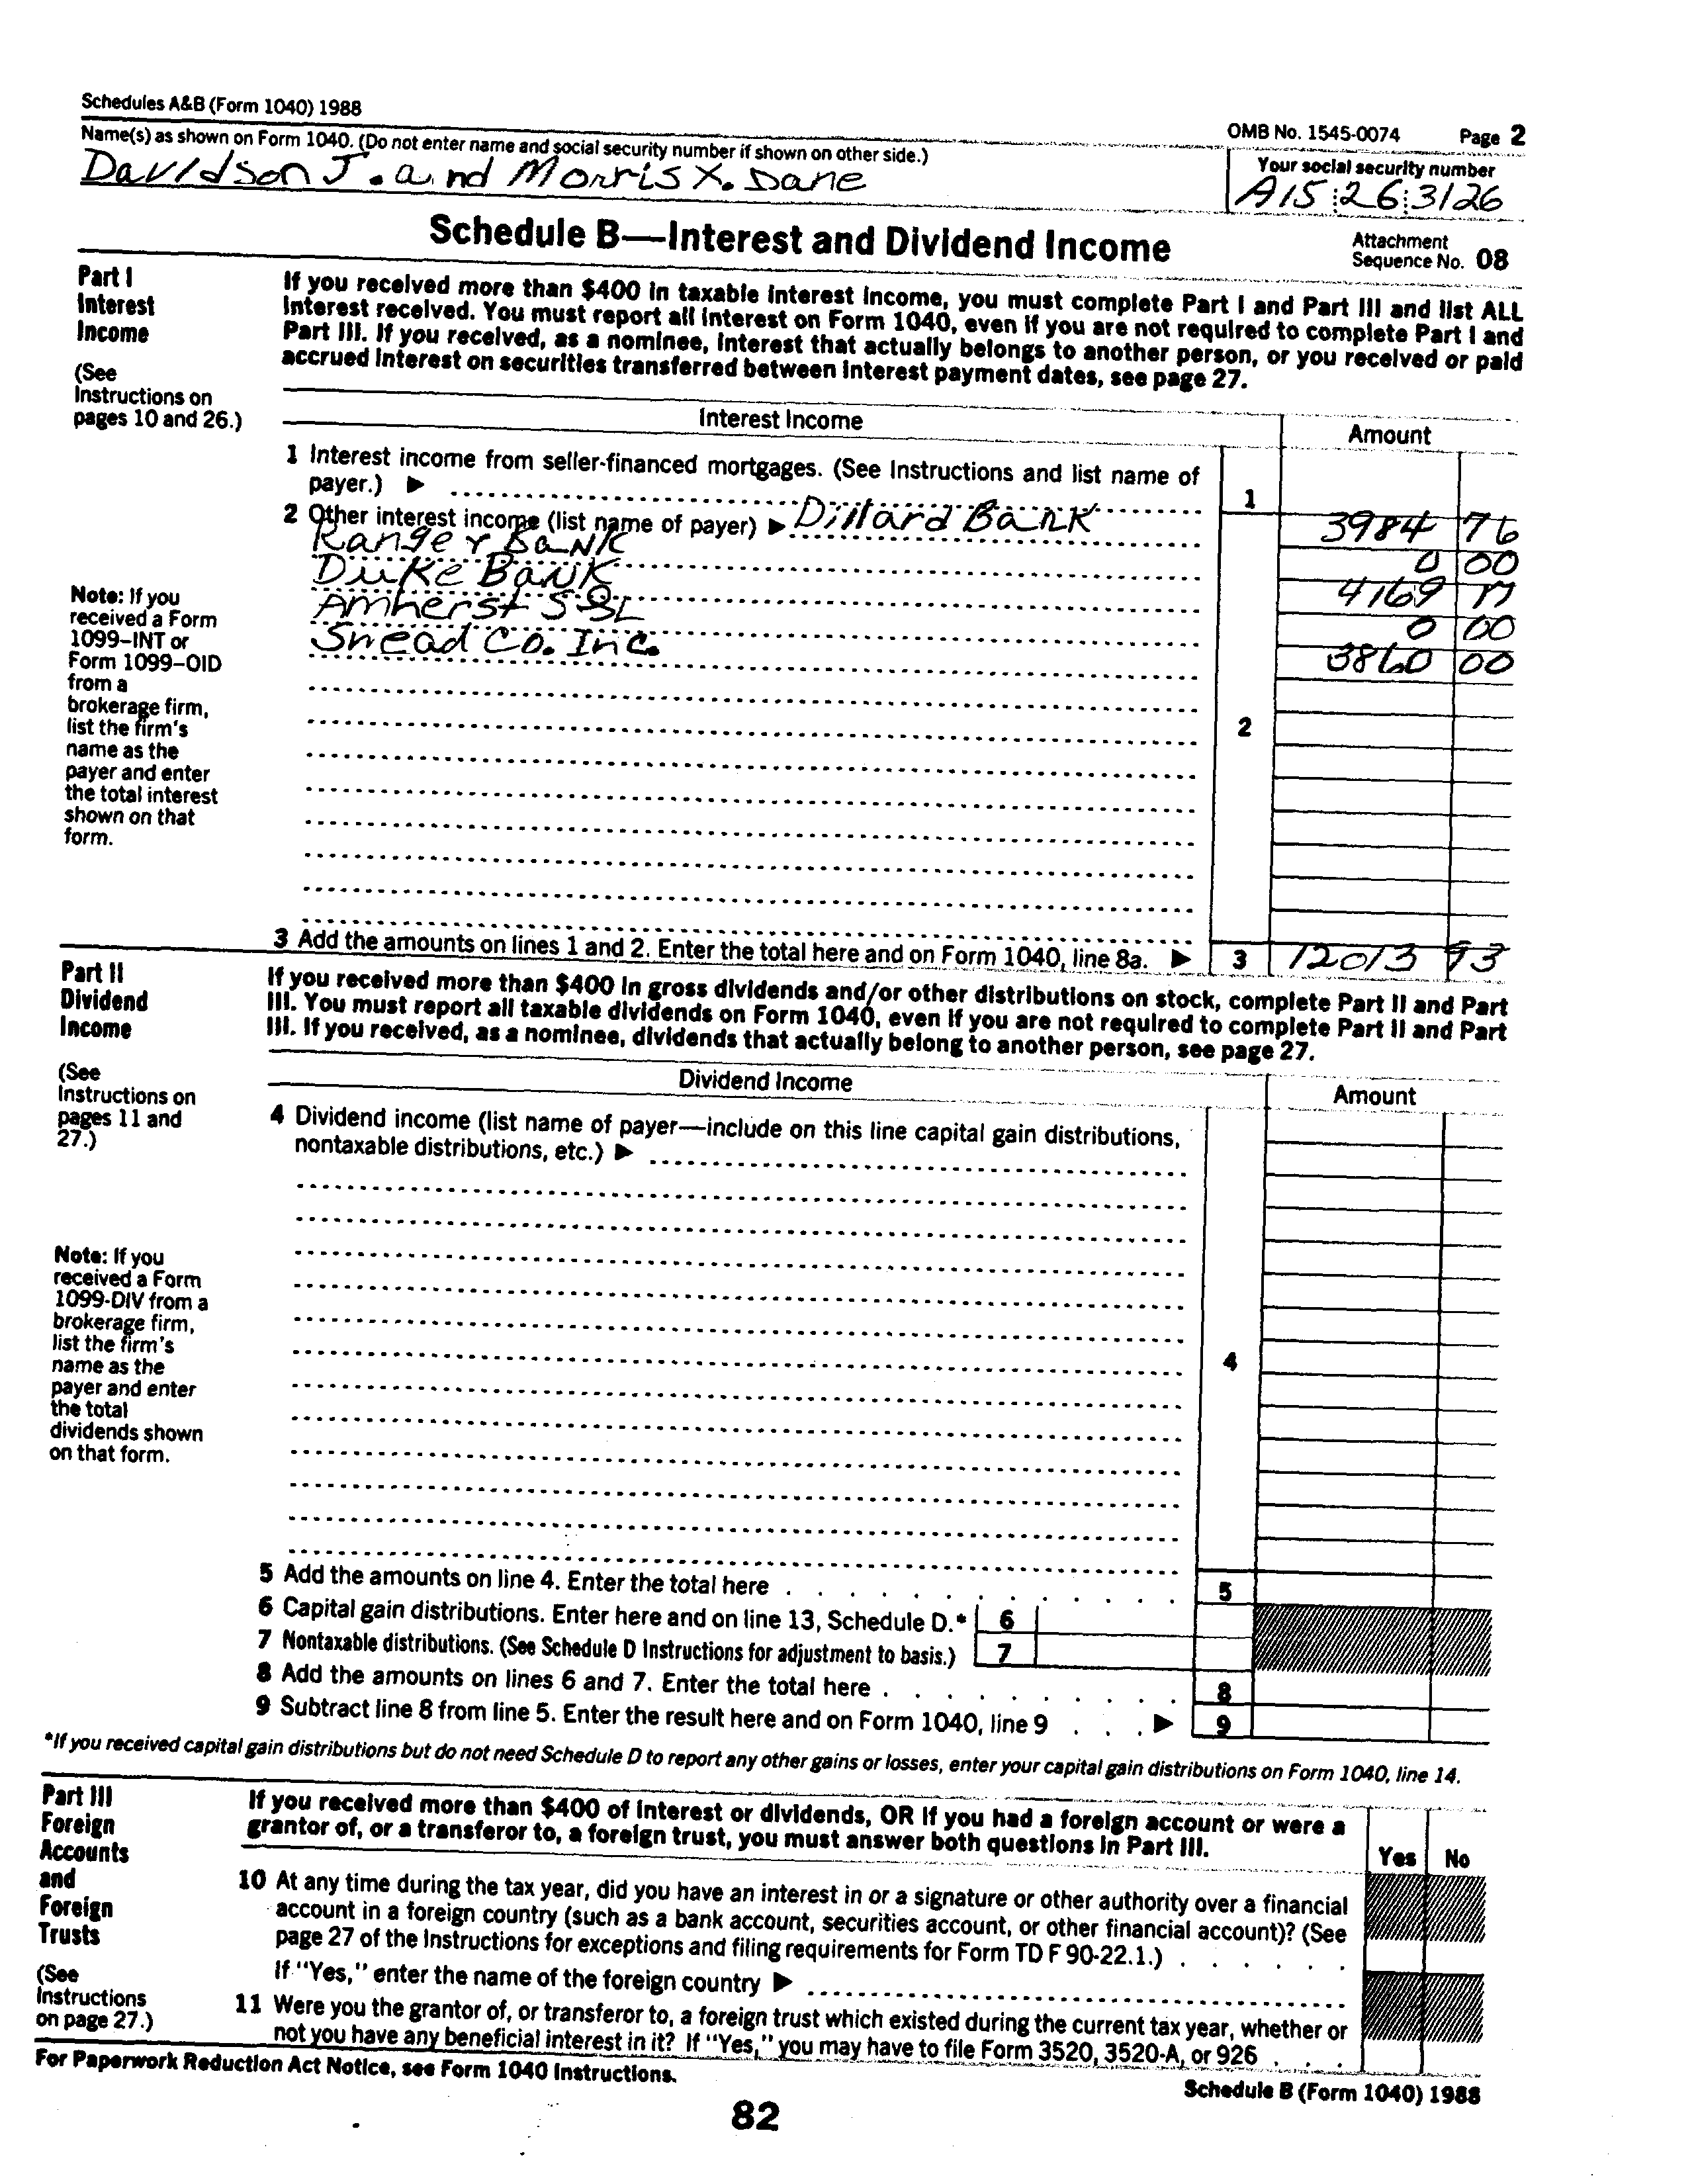 Schedules A&B (Form 1040) 1988
OMB No. 1545-0074 Page 2
Name(s) as shown on Form 1040. (Do not enter name and social security number if shown on other side.)
Your social security number
Davidson J. and Morris X. Dane
A15 26 3126
Schedule B—Interest and Dividend Income
Attachment
Sequence No. 08
Part I
Interest
Income
(See
Instructions on
pages 10 and 26.)
If you received more than $400 in taxable interest income, you must complete Part I and Part III and list ALL
interest received. You must report all interest on Form 1040, even if you are not required to complete Part I and
Part III. If you received, as a nominee, interest that actually belongs to another person, or you received or paid
accrued interest on securities transferred between interest payment dates, see page 27.
Interest Income
Amount
1 Interest income from seller-financed mortgages. (See Instructions and list name of
payer.) ▶
1
2 Other interest income (list name of payer) ▶ Dillard Bank
3984 76
Ranger Bank
0 00
Duke Bank
4169 17
Amherst S&L
0 00
Snead Co. Inc.
3860 00
2
Note: If you
received a Form
1099–INT or
Form 1099–OID
from a
brokerage firm,
list the firm's
name as the
payer and enter
the total interest
shown on that
form.
3 Add the amounts on lines 1 and 2. Enter the total here and on Form 1040, line 8a. ▶ 3 12013 93
Part II
Dividend
Income
(See
Instructions on
pages 11 and
27.)
If you received more than $400 in gross dividends and/or other distributions on stock, complete Part II and Part
III. You must report all taxable dividends on Form 1040, even if you are not required to complete Part II and Part
III. If you received, as a nominee, dividends that actually belong to another person, see page 27.
Dividend Income
Amount
4 Dividend income (list name of payer—include on this line capital gain distributions,
nontaxable distributions, etc.) ▶
4
Note: If you
received a Form
1099-DIV from a
brokerage firm,
list the firm's
name as the
payer and enter
the total
dividends shown
on that form.
5 Add the amounts on line 4. Enter the total here . . . . . . . . . . 5
6 Capital gain distributions. Enter here and on line 13, Schedule D.* 6
7 Nontaxable distributions. (See Schedule D Instructions for adjustment to basis.) 7
8 Add the amounts on lines 6 and 7. Enter the total here . . . . . . . . . . 8
9 Subtract line 8 from line 5. Enter the result here and on Form 1040, line 9 . . . ▶ 9
*If you received capital gain distributions but do not need Schedule D to report any other gains or losses, enter your capital gain distributions on Form 1040, line 14.
Part III
Foreign
Accounts
and
Foreign
Trusts
(See
Instructions
on page 27.)
If you received more than $400 of interest or dividends, OR if you had a foreign account or were a
grantor of, or a transferor to, a foreign trust, you must answer both questions in Part III.
Yes No
10 At any time during the tax year, did you have an interest in or a signature or other authority over a financial
account in a foreign country (such as a bank account, securities account, or other financial account)? (See
page 27 of the Instructions for exceptions and filing requirements for Form TD F 90-22.1.) . . . . . .
If "Yes," enter the name of the foreign country ▶
11 Were you the grantor of, or transferor to, a foreign trust which existed during the current tax year, whether or
not you have any beneficial interest in it? If "Yes," you may have to file Form 3520, 3520-A, or 926 . . .
For Paperwork Reduction Act Notice, see Form 1040 Instructions.
Schedule B (Form 1040) 1988
82